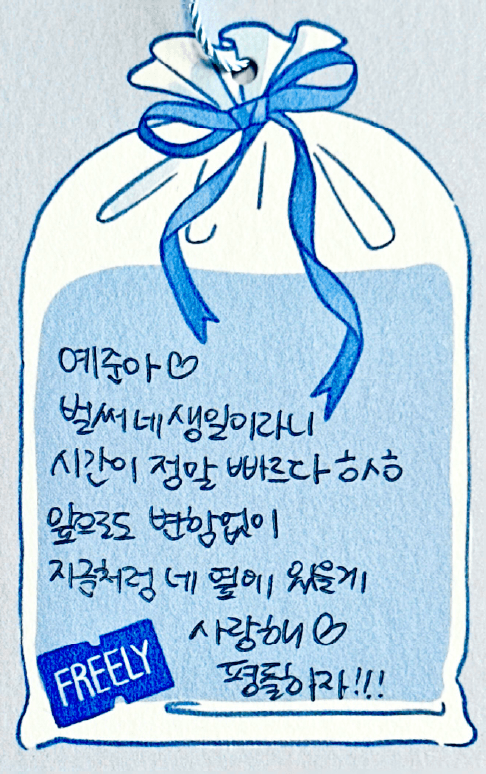 예준아♡
벌써 네 생일이라니
시간이 정말 빠르다 ㅎㅅㅎ
앞으로도 변함없이
지금처럼 네 옆에 있을게
사랑해♡
평돌이자!!!
FREELY